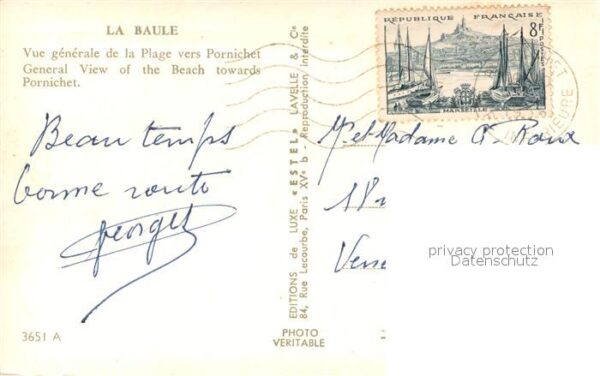 LA BAULE
Vue générale de la Plage vers Pornichet
General View of the Beach towards
Pornichet.
Beau temps
bonne route
Georges
3651 A
EDITIONS de LUXE "ESTEL" LAVELLE & Cie
84, Rue Lecourbe, Paris XVe b Reproduction interdite
PHOTO
VERITABLE
RÉPUBLIQUE FRANÇAISE
8F
POSTES
MARSEILLE
INFÉRIEURE
Mr et Madame A. Roux
18
Vers
privacy protection
Datenschutz